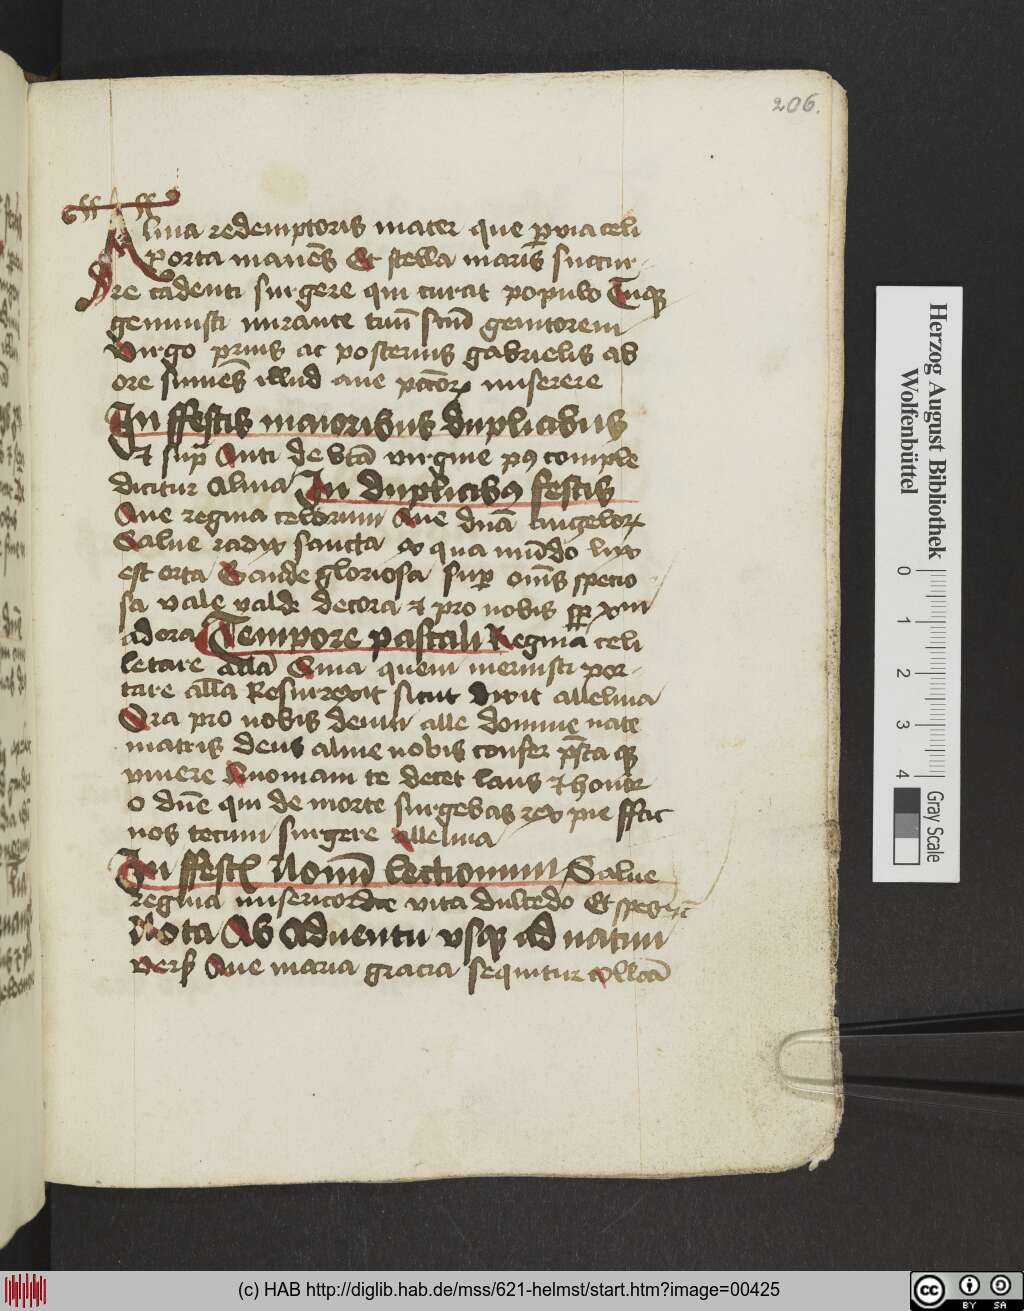 206.
Alma redemptoris mater que pͥuia celi
Porta manēs Et stella maris succur-
re cadenti surgere qui curat populo Tu que
genuisti mirante tuū scm̄ genitorem
Virgo prius ac posterius gabrielis ab
ore sumēs illud aue pctōꝝ miserere
In ffestis maioribus duplicibus
et sup̄ Anti de btā virgine pꝰ comple
dicitur Alma In duplicibꝯ festis
Aue regina celorum Aue dn̄a angeloꝝ
Salue radix sancta ex qua mūdo lux
est orta Gaude gloriosa sup̄ om̄s specio
sa vale valde decora et pro nobis semꝑ xpm
adora Tempore pascali Regina celi
letare allā Quia quem meruisti por-
tare all̄a Resurrexit sicut dixit alleluia
Ora pro nobis deum alle domine nate
matris deus alme nobis confer pr̄sta qꝫ
viuere Quoniam te decet laus et honor
o dn̄e qui de morte surgebas rex pie ffac
nos tecum surgere alleluia
In ffestꝭ Nouē lectionum Salue
regina misericordie vita dulcedo Et spes nr̄
Nota Ab Aduentu vsqꝫ ad natiui
vers Aue maria gracia sequitur collcā
Herzog August Bibliothek
Wolfenbüttel
0 1 2 3 4
Gray Scale
(c) HAB http://diglib.hab.de/mss/621-helmst/start.htm?image=00425
cc BY SA